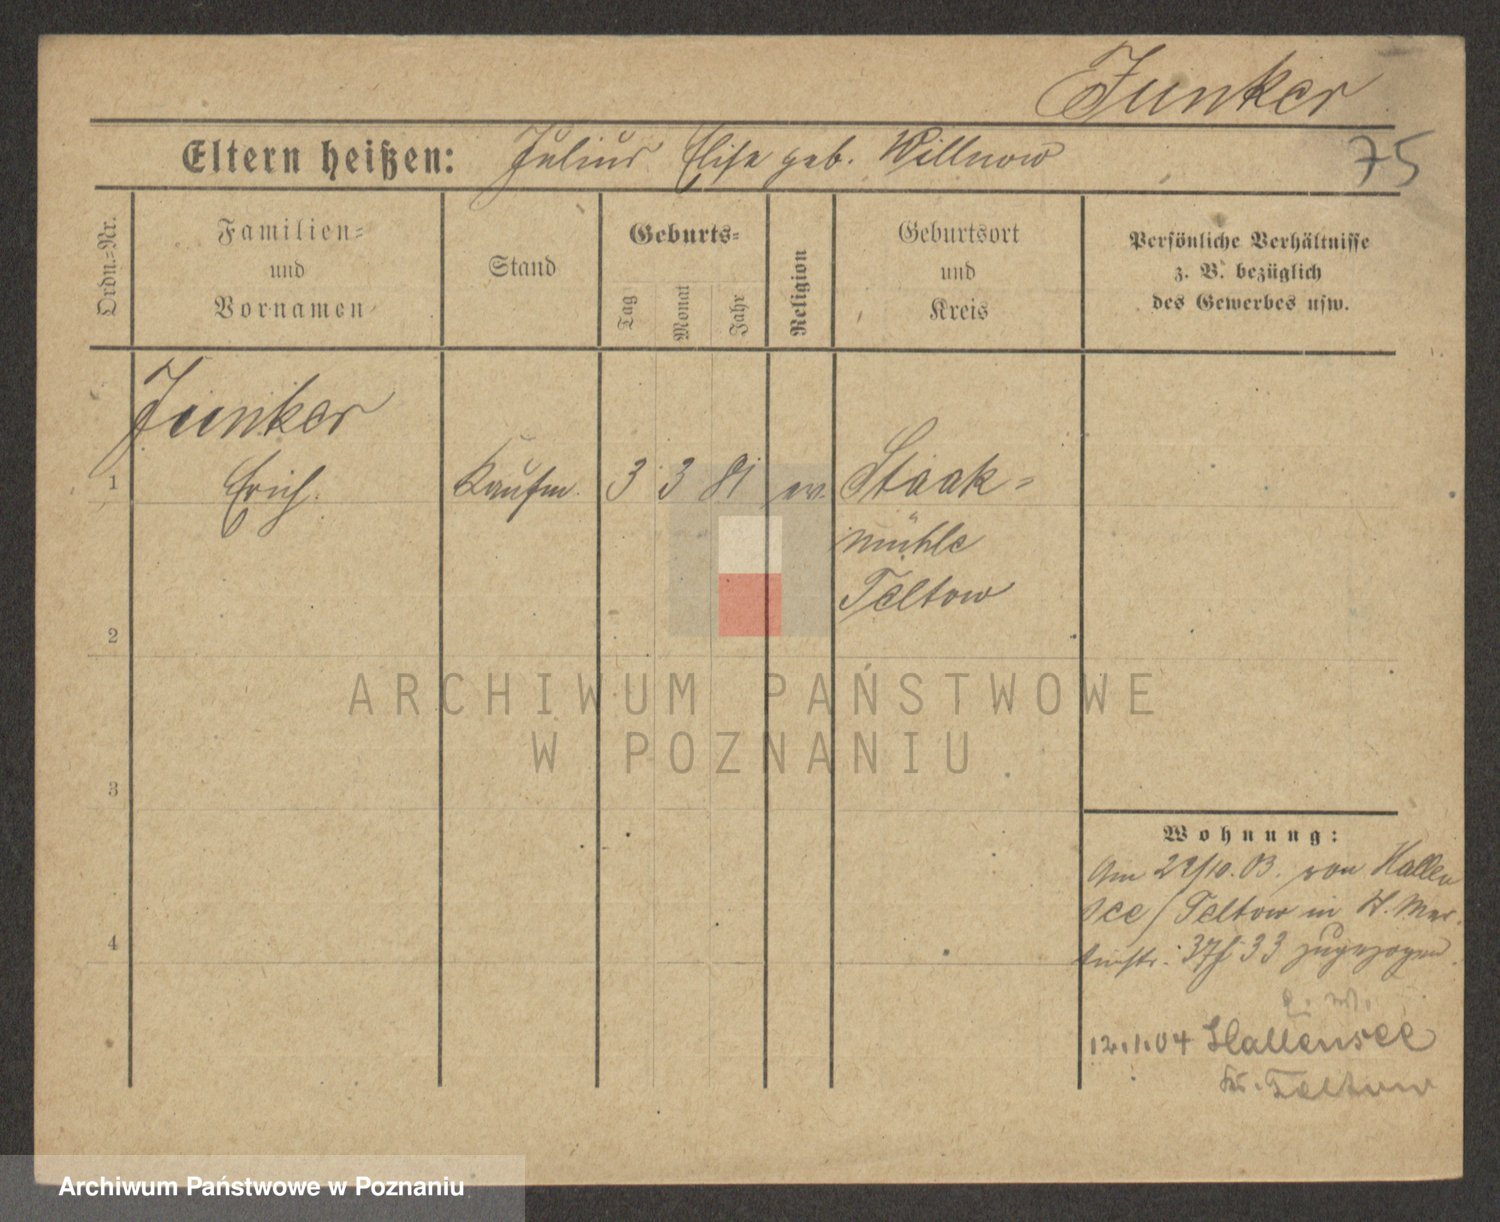 Junker
75
Eltern heißen: Julius Elise geb. Willnow
Ordn.-Nr.
Familien-
und
Vornamen
Stand
Geburts-
Tag
Monat
Jahr
Religion
Geburtsort
und
Kreis
Persönliche Verhältnisse
z. B. bezüglich
des Gewerbes usw.
Junker
1 Erich. Kaufm. 3 3 81 ev. Staak-
mühle
Teltow
2
ARCHIWUM PAŃSTWOWE
W POZNANIU
3
4
Wohnung:
Am 29/10.03. von Hallen
see / Teltow in
33 zugezogen.
12.1.04 Hallensee
Kr. Teltow
Archiwum Państwowe w Poznaniu